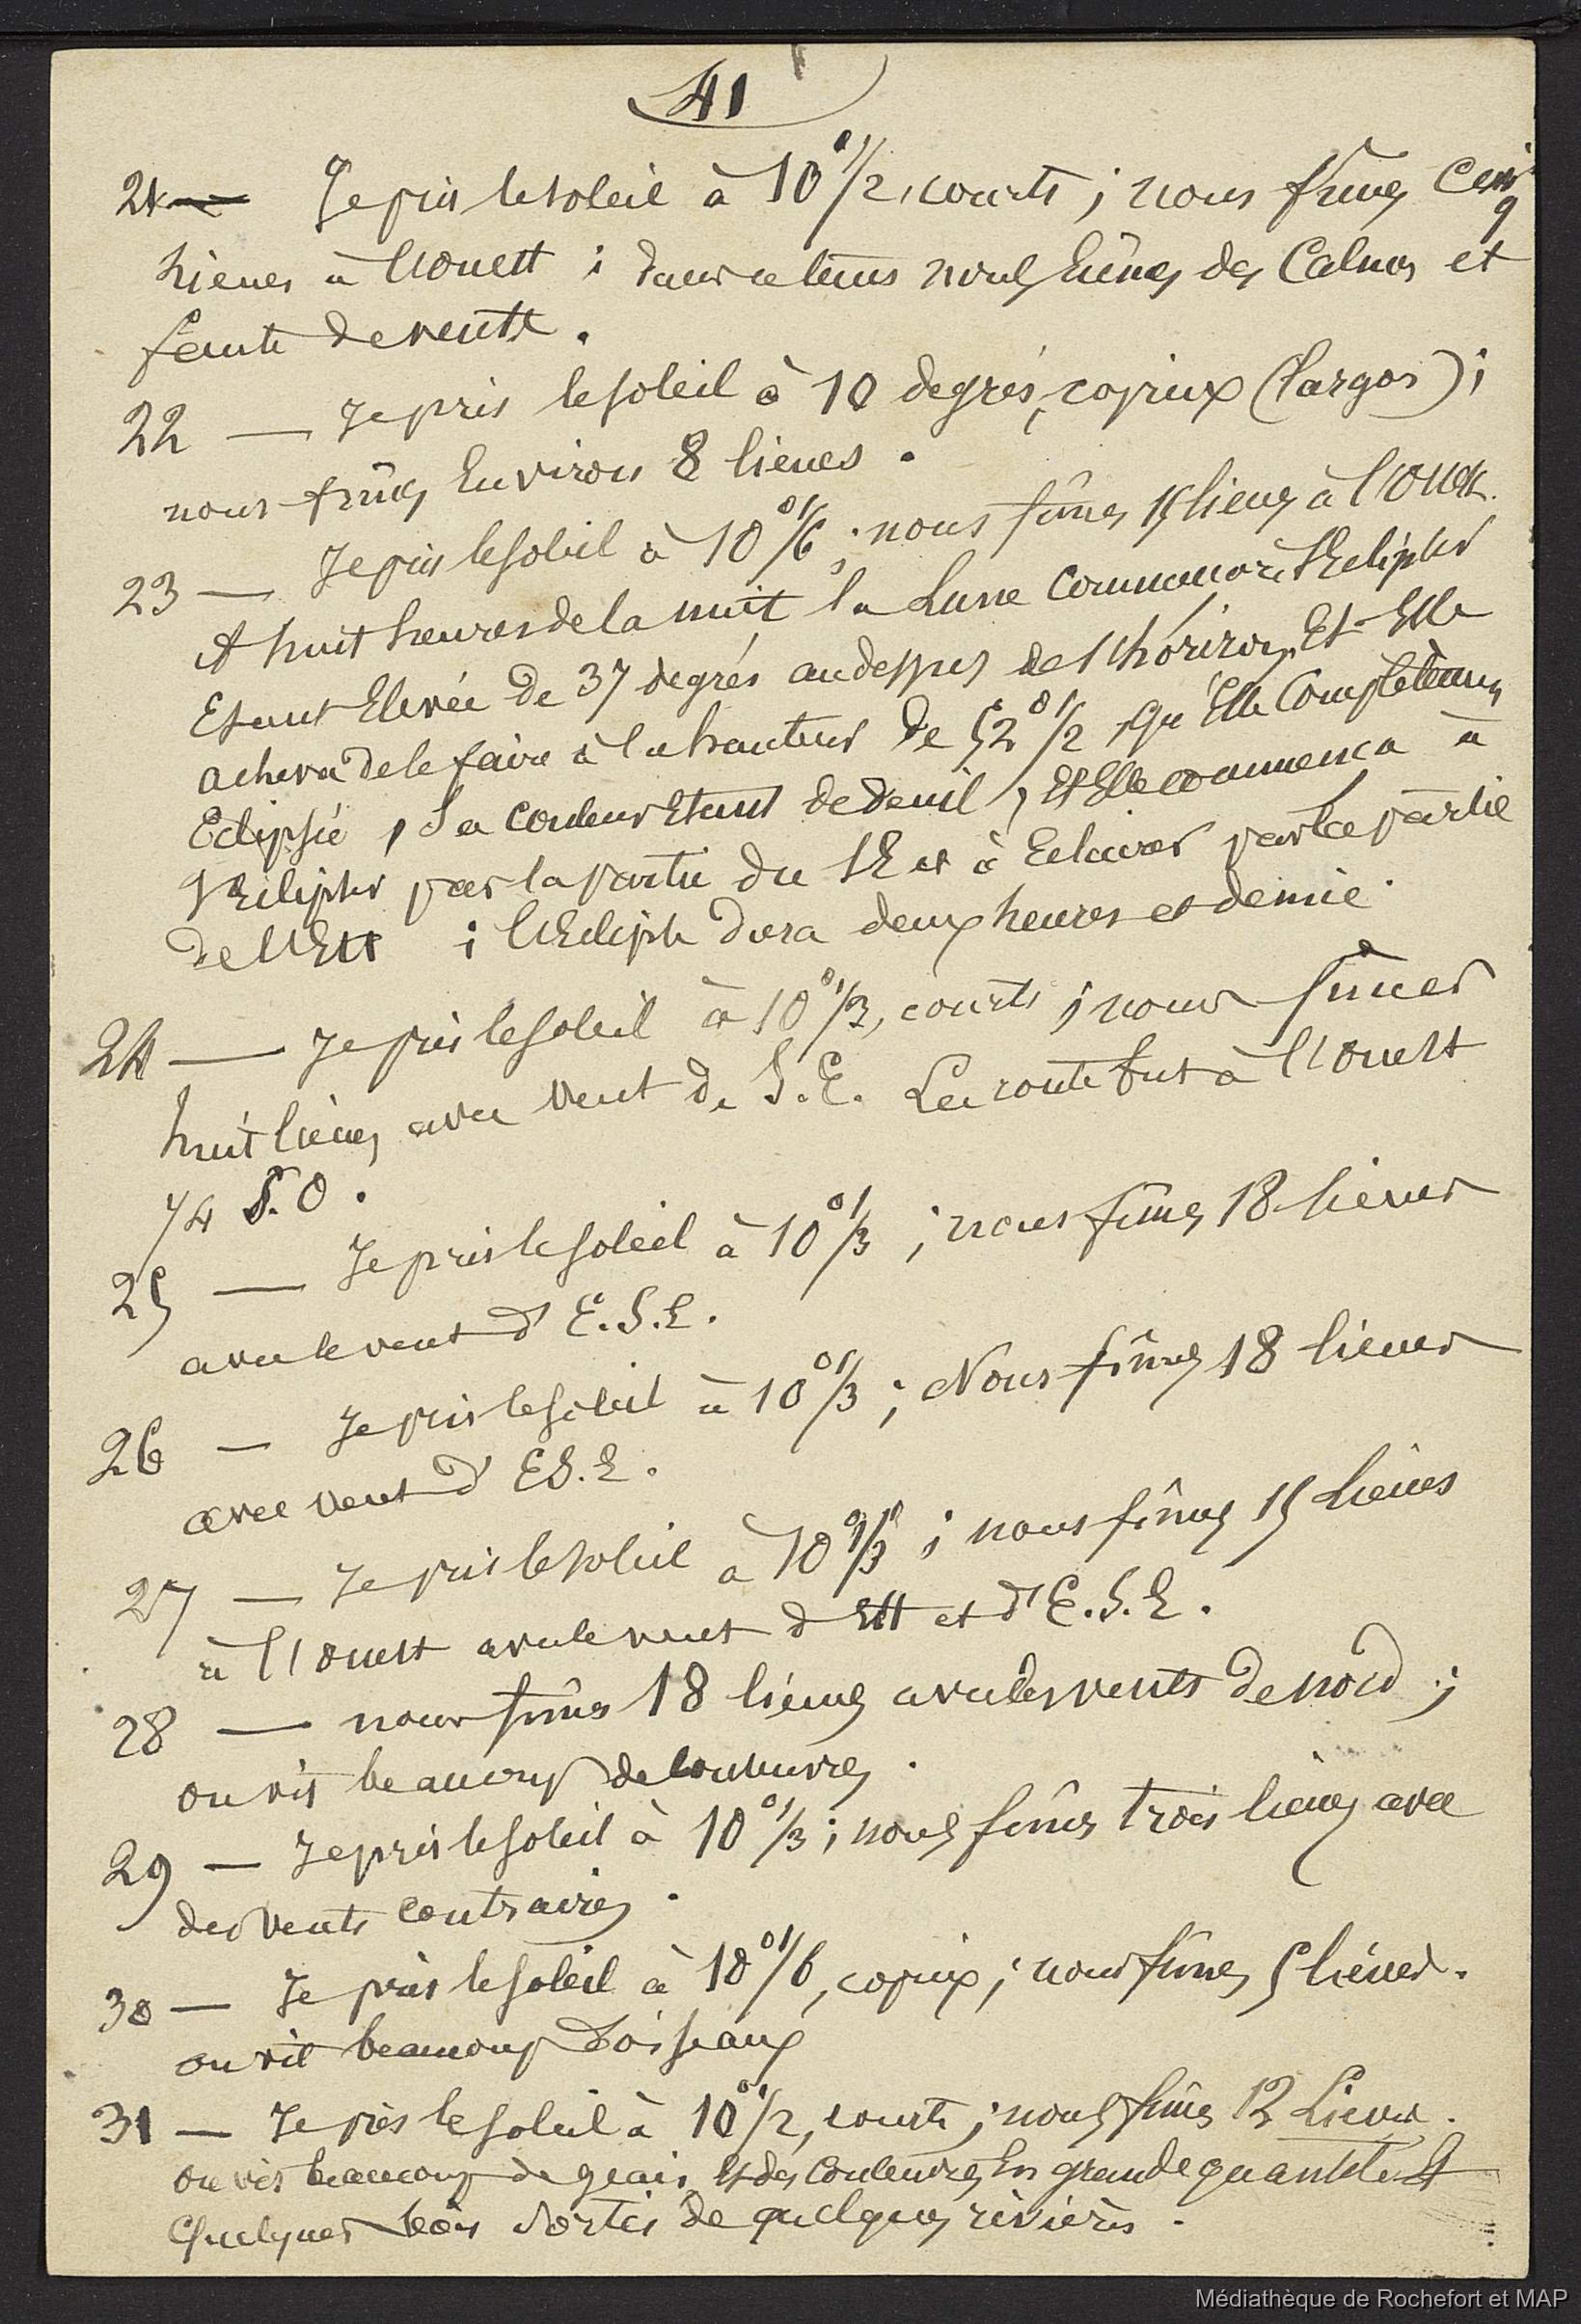 41
21 — Je pris le soleil à 10°1/2, courts ; nous fîmes Cinq
lieues à l'Ouest ; dans ce tems nous eûmes des Calmes et
faute de vents.
22 — Je pris le soleil à 10 degrés, copieux (largos) ;
nous fîmes Environ 8 lieues.
23 — Je pris le soleil à 10°1/6 ; nous fîmes 15 lieues à l'Ouest.
A huit heures de la nuit la Lune Commença à s'Eclipser
Etant Elevée de 37 degrés au dessus de l'horizon, Et Elle
acheva de le faire à la hauteur de 52°1/2, qu'Elle Complètement
Eclipsée, Sa Couleur Etant de deuil, Et Elle commença à
s'Eclipser par la partie du S E et à Eclairer par la partie
de l'Est ; l'Eclipse dura deux heures et demie.
24 — Je pris le soleil à 10°1/3, courts ; nous fîmes
huit lieues avec vent de S.E. La route fut à l'Ouest
1/4 S.O.
25 — Je pris le soleil à 10°1/3 ; nous fîmes 18 lieues
avec le vent d'E.S.E.
26 — Je pris le soleil à 10°1/3 ; Nous fîmes 18 lieues
avec vent d'ES.E.
27 — Je pris le soleil à 10°1/3 ; nous fîmes 15 lieues
à l'Ouest avec le vent d'Est et d'E.S.E.
28 — nous fîmes 18 lieues avec les vents de nord ;
on vit beaucoup de couleuvres.
29 — Je pris le soleil à 10°1/3 ; nous fîmes trois lieues avec
des vents contraires.
30 — Je pris le soleil à 10°1/6, copieux ; nous fîmes 5 lieues.
on vit beaucoup d'oiseaux
31 — Je pris le soleil à 10°1/2, courts ; nous fîmes 12 Lieues.
on vit beaucoup de geais, Et des Couleuvres En grande quantité Et
Quelques sortis de quelques rivières.
Médiathèque de Rochefort et MAP